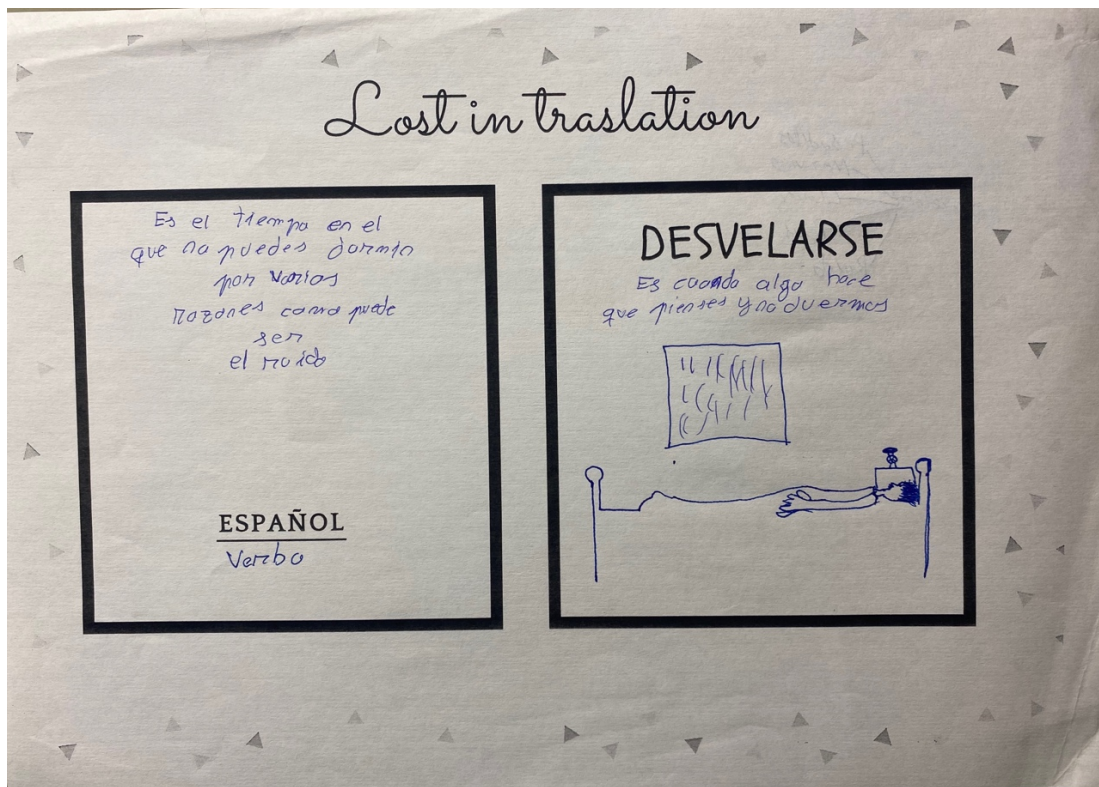 Lost in traslation
Es el tiempo en el
que no puedes dormir
por varias
razones como puede
ser
el ruido
ESPAÑOL
Verbo
DESVELARSE
Es cuando algo hace
que pienses y no duermas